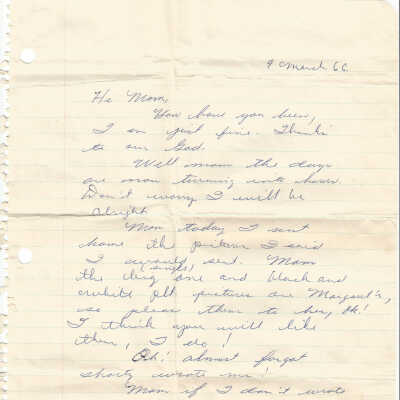 9 March 66
Hi Mom,
How have you been,
I am just fine. Thanks
to our God.
Well mom the days
are now turning into hours.
Don't worry I will be
alright
Mom today I sent
home the pictures I said
I would sent. Mom
(single)
the big one and black and
white plt pictures are Margaret's,
so please them to her, Ok!
I think you will like
them, I do!
Oh! almost forgot
shorty wrote me!
Mom if I don't wrote